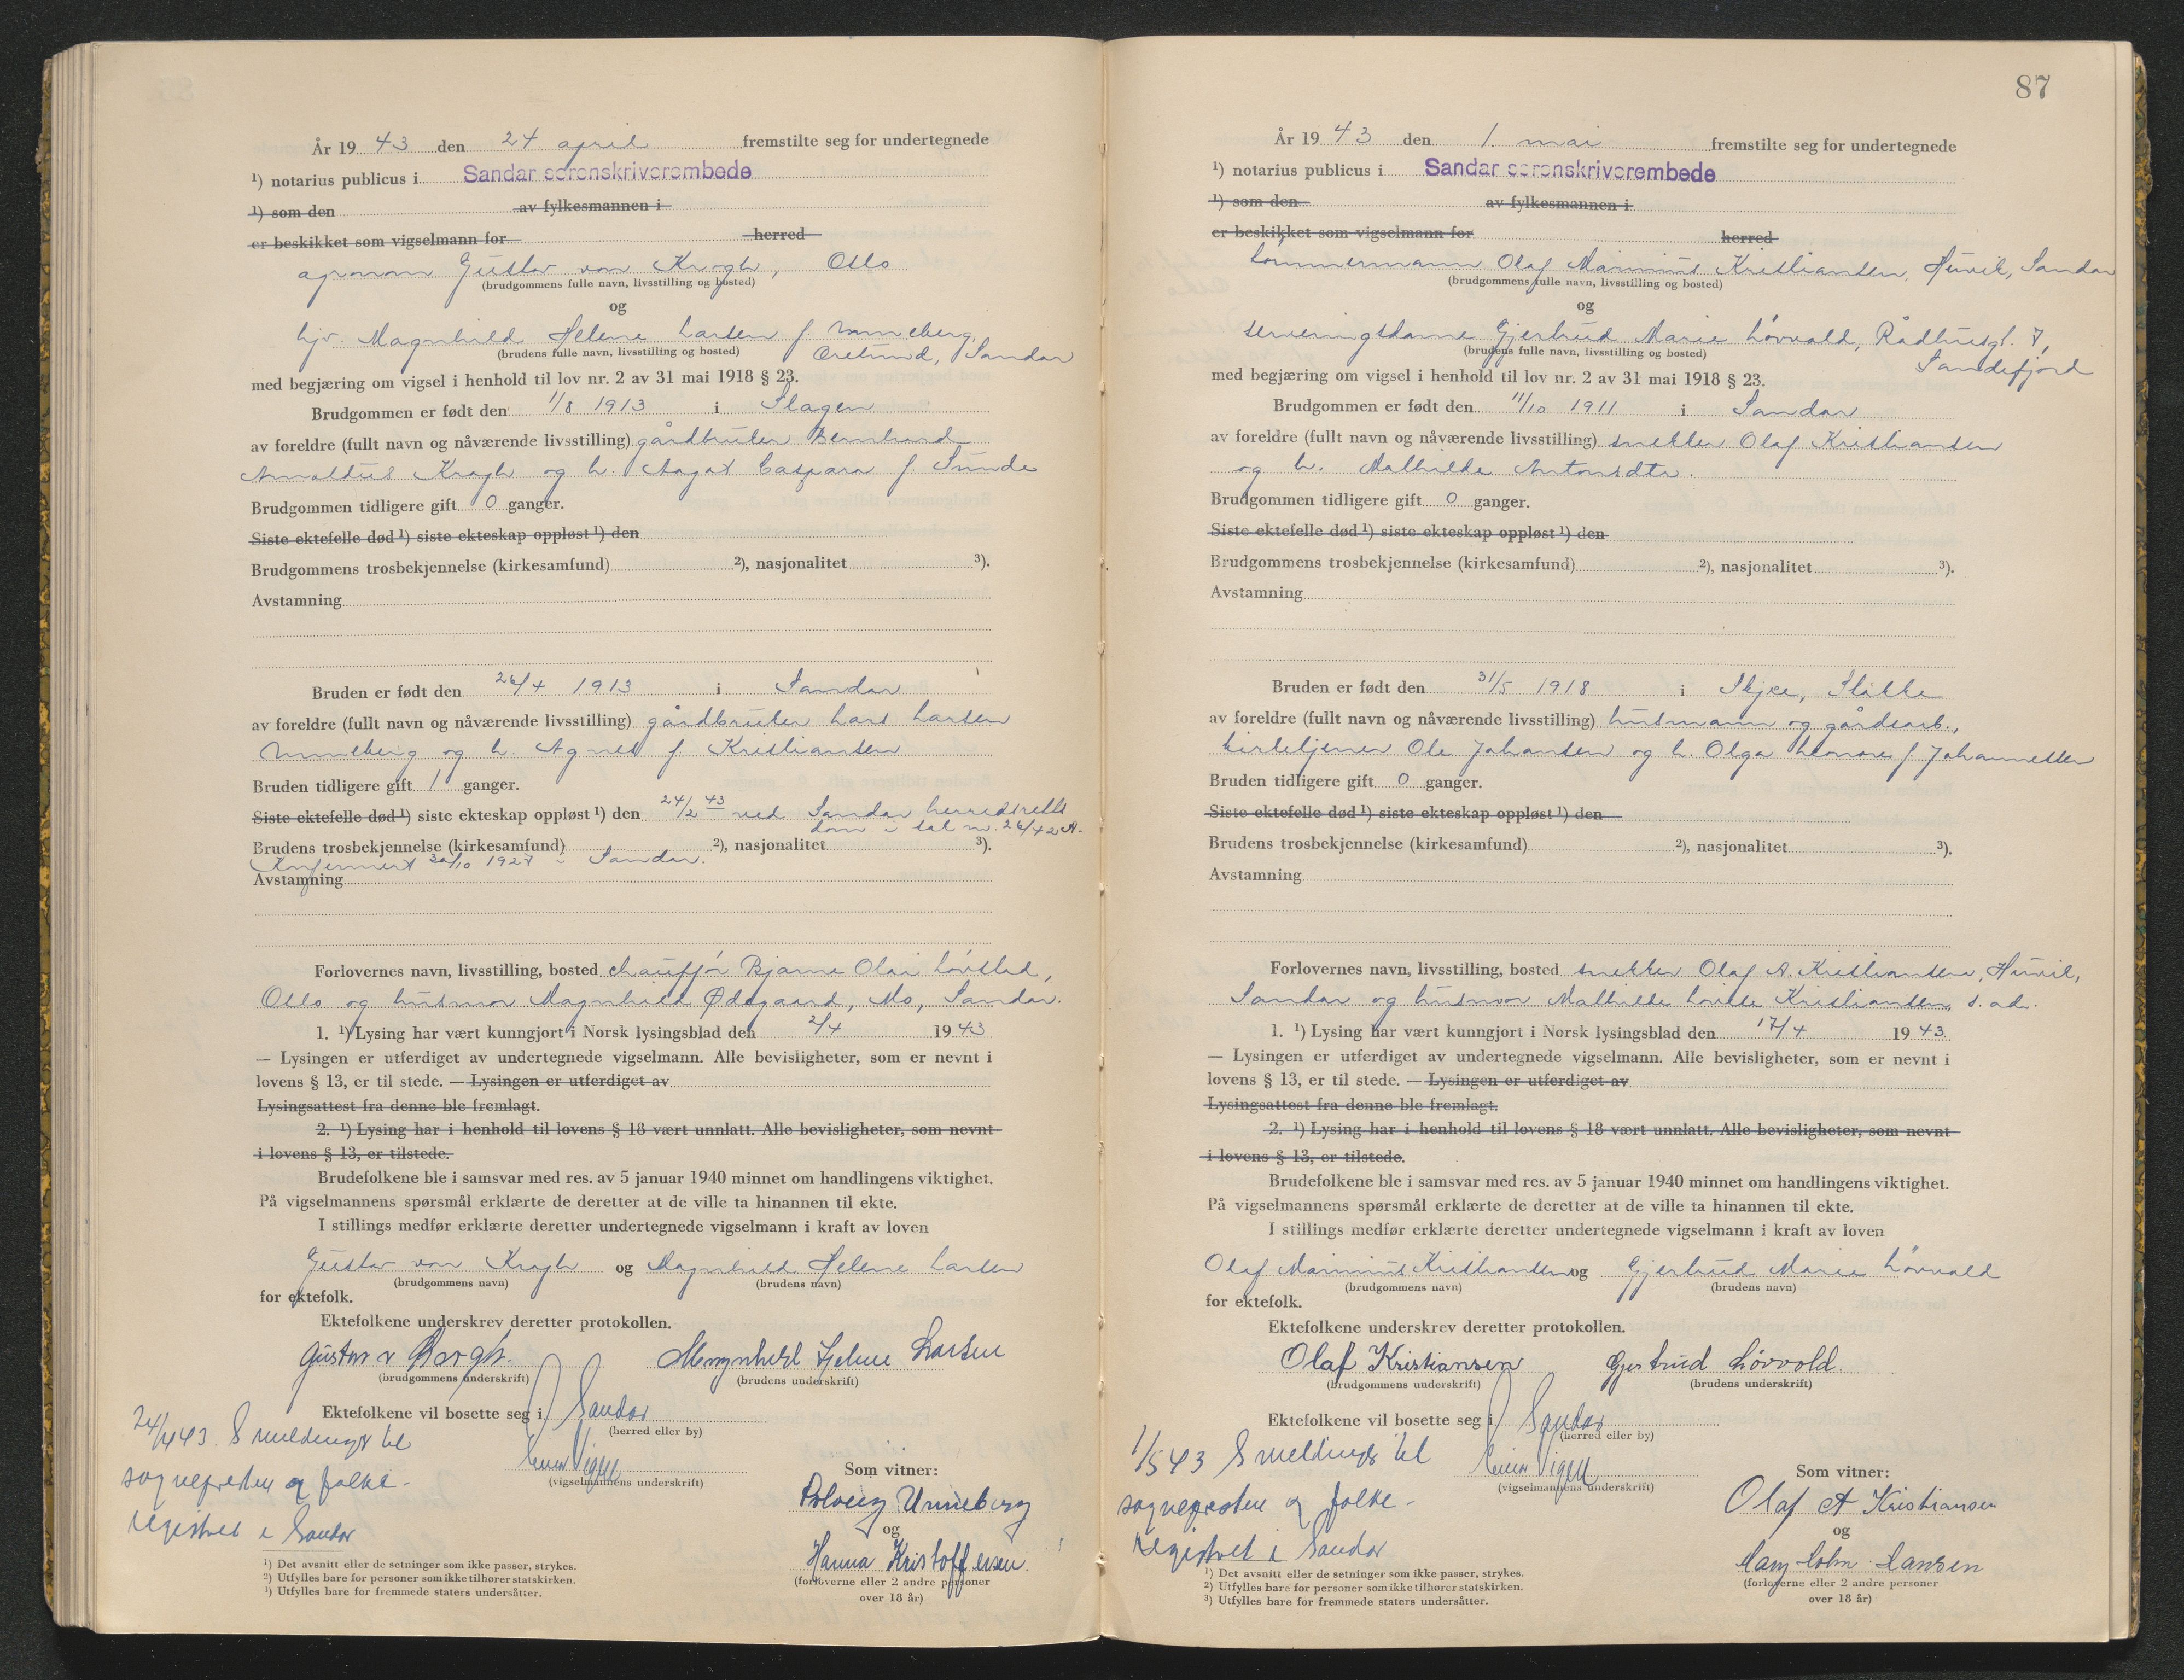 År 19 43 den 24 april fremstilte seg for undertegnede
¹) notarius publicus i Sandar sorenskriverembede
¹) som den av fylkesmannen i
er beskikket som vigselmann for herred
agronom Gustav von Krogh, Oslo
(brudgommens fulle navn, livsstilling og bosted)
og
hjv. Magnhild Helene Larsen f. Unneberg,
(brudens fulle navn, livsstilling og bosted) Orelund, Sandar
med begjæring om vigsel i henhold til lov nr. 2 av 31 mai 1918 § 23.
Brudgommen er født den 11/8 1913 i Slagen
av foreldre (fullt navn og nåværende livsstilling) gårdbruker Bernhard
Arnoldus Krogh og h. Aagot Caspara f. Sunde
Brudgommen tidligere gift 0 ganger.
Siste ektefelle død ¹) siste ekteskap oppløst ¹) den
Brudgommens trosbekjennelse (kirkesamfund) ²), nasjonalitet ³).
Avstamning
Bruden er født den 26/4 1913 i Sandar
av foreldre (fullt navn og nåværende livsstilling) gårdbruker Lars Larsen
Unneberg og h. Agnes f. Kristiansen
Bruden tidligere gift 1 ganger.
Siste ektefelle død ¹) siste ekteskap oppløst ¹) den 24/2 43 ved Sandar herredsretts
dom i sak nr. 26/42 A.
Brudens trosbekjennelse (kirkesamfund) ²), nasjonalitet ³).
Konfirmert 30/10 1927 i Sandar.
Avstamning
Forlovernes navn, livsstilling, bosted chauffør Bjarne Olai Løvstad,
Oslo og husmor Magnhild Ødegaard, Mo, Sandar.
1. ¹) Lysing har vært kunngjort i Norsk lysingsblad den 2/4 19 43
— Lysingen er utferdiget av undertegnede vigselmann. Alle bevisligheter, som er nevnt i
lovens § 13, er til stede. — Lysingen er utferdiget av
Lysingsattest fra denne ble fremlagt.
2. ¹) Lysing har i henhold til lovens § 18 vært unnlatt. Alle bevisligheter, som nevnt
i lovens § 13, er tilstede.
Brudefolkene ble i samsvar med res. av 5 januar 1940 minnet om handlingens viktighet.
På vigselmannens spørsmål erklærte de deretter at de ville ta hinannen til ekte.
I stillings medfør erklærte deretter undertegnede vigselmann i kraft av loven
Gustav von Krogh og Magnhild Helene Larsen
(brudgommens navn) (brudens navn)
for ektefolk.
Ektefolkene underskrev deretter protokollen.
Gustav v Krogh. Magnhild Helene Larsen
(brudgommens underskrift) (brudens underskrift)
Ektefolkene vil bosette seg i Sandar
(herred eller by)
24/4 43. 2 meldinger til
sognepresten og folke-
registret i Sandar
(vigselmannens underskrift)
Som vitner:
Solveig Unneberg
og
Hanna Kristoffersen.
(forloverne eller 2 andre personer
over 18 år)
¹) Det avsnitt eller de setninger som ikke passer, strykes.
²) Utfylles bare for personer som ikke tilhører statskirken.
³) Utfylles bare for fremmede staters undersåtter.
87
År 19 43 den 1. mai fremstilte seg for undertegnede
¹) notarius publicus i Sandar sorenskriverembede
¹) som den av fylkesmannen i
er beskikket som vigselmann for herred
tømmermann Olaf Marinius Kristiansen, Huvik, Sandar
(brudgommens fulle navn, livsstilling og bosted)
og
serveringsdame Gjertrud Marie Løvvold, Rådhusgt. 7,
(brudens fulle navn, livsstilling og bosted) Sandefjord
med begjæring om vigsel i henhold til lov nr. 2 av 31 mai 1918 § 23.
Brudgommen er født den 11/10 1911 i Sandar
av foreldre (fullt navn og nåværende livsstilling) snekker Olaf Kristiansen
og h. Mathilde Antonsdtr.
Brudgommen tidligere gift 0 ganger.
Siste ektefelle død ¹) siste ekteskap oppløst ¹) den
Brudgommens trosbekjennelse (kirkesamfund) ²), nasjonalitet ³).
Avstamning
Bruden er født den 31/5 1918 i Skjee, Stokke
av foreldre (fullt navn og nåværende livsstilling) husmann og gårdsarb.,
kirketjener Ole Johansen og h. Olga Lenore f. Johannessen
Bruden tidligere gift 0 ganger.
Siste ektefelle død ¹) siste ekteskap oppløst ¹) den
Brudens trosbekjennelse (kirkesamfund) ²), nasjonalitet ³).
Avstamning
Forlovernes navn, livsstilling, bosted snekker Olaf A. Kristiansen, Huvik,
Sandar og husmor Mathilde Lovise Kristiansen, s. ad.
1. ¹) Lysing har vært kunngjort i Norsk lysingsblad den 17/4 19 43
— Lysingen er utferdiget av undertegnede vigselmann. Alle bevisligheter, som er nevnt i
lovens § 13, er til stede. — Lysingen er utferdiget av
Lysingsattest fra denne ble fremlagt.
2. ¹) Lysing har i henhold til lovens § 18 vært unnlatt. Alle bevisligheter, som nevnt
i lovens § 13, er tilstede.
Brudefolkene ble i samsvar med res. av 5 januar 1940 minnet om handlingens viktighet.
På vigselmannens spørsmål erklærte de deretter at de ville ta hinannen til ekte.
I stillings medfør erklærte deretter undertegnede vigselmann i kraft av loven
Olaf Marinius Kristiansen og Gjertrud Marie Løvvold
(brudgommens navn) (brudens navn)
for ektefolk.
Ektefolkene underskrev deretter protokollen.
Olaf Kristiansen Gjertrud Løvvold.
(brudgommens underskrift) (brudens underskrift)
Ektefolkene vil bosette seg i Sandar
(herred eller by)
1/5 43 2 meldinger til
sognepresten og folke-
registret i Sandar
(vigselmannens underskrift)
Som vitner:
Olaf A Kristiansen
og
Hansen
(forloverne eller 2 andre personer
over 18 år)
¹) Det avsnitt eller de setninger som ikke passer, strykes.
²) Utfylles bare for personer som ikke tilhører statskirken.
³) Utfylles bare for fremmede staters undersåtter.